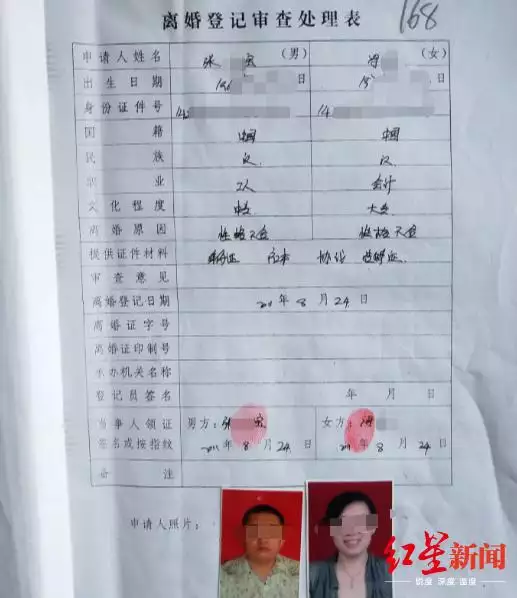 离婚登记审查处理表
168
申请人姓名 张 宏 (男) (女)
出生日期 196 日 19 日
身份证件号 142 14
国籍 中国 中国
民族 汉 汉
职业 工人 会计
文化程度 中专 大专
离婚原因 性格不合 性格不合
提供证件材料 身份证 户口本 协议 结婚证
审查意见
离婚登记日期 2011年8月24日
离婚证字号
离婚证印制号
承办机关名称
登记员签名 年 月 日
当事人领证 男方:张 宏 女方:
签名或按指纹 2011年8月24日 2011年8月24日
备注
申请人照片:
红星新闻
锐度 深度 温度